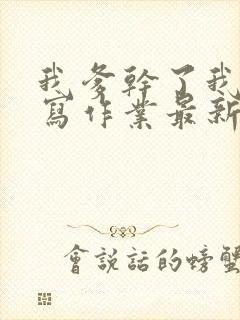 我爹幹了我
寫作業最新
會說話的螃蟹